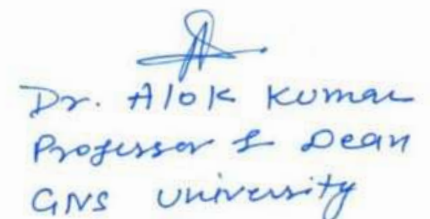 Dr. Alok Kumar
Professor & Dean
GNS University